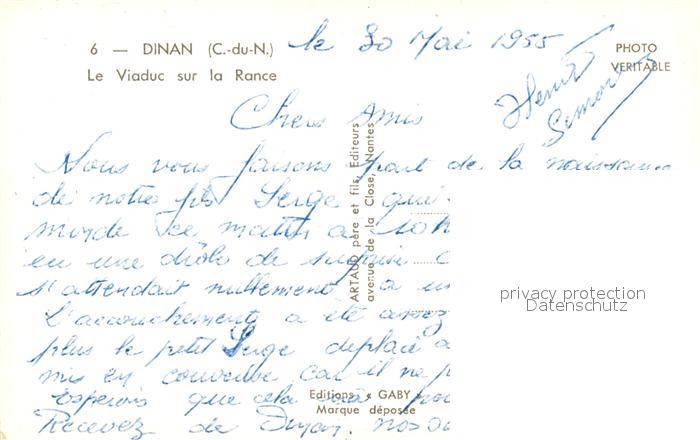 6 — DINAN (C.-du-N.)
Le Viaduc sur la Rance
le 30 Mai 1955
PHOTO
VERITABLE
Chers Amis
Nous vous faisons part de la naissance
de notre fils Serge qui
monde ce matin à 10 h
eu une drôle de surprise
s'attendait nullement à un
L'accouchement a été assez
plus le petit Serge deplacé
mis en couveuse car il ne p
Espérons que cela
Recevez de Dinan. nos
ARTAUD père et fils, Editeurs
avenue de la Close, Nantes
privacy protection
Datenschutz
Editions « GABY »
Marque déposée